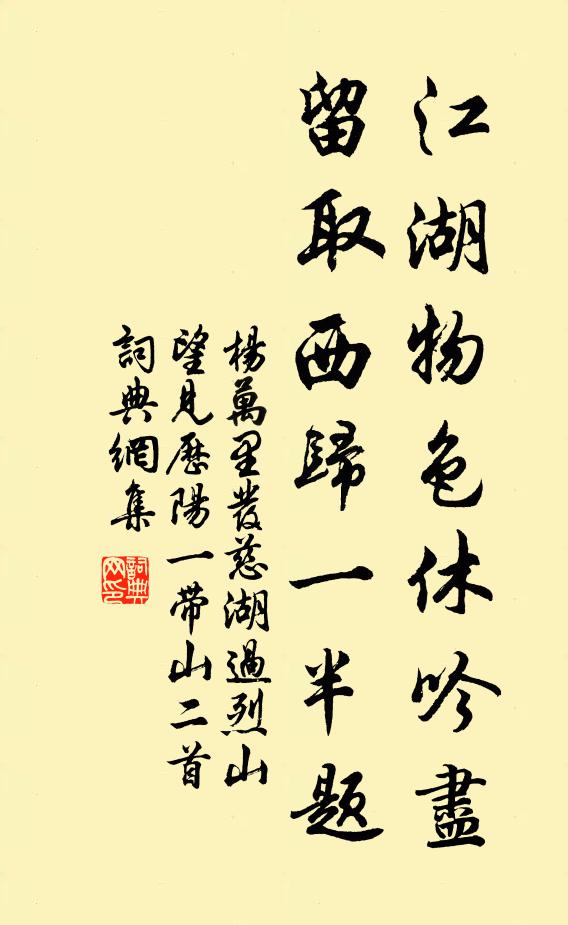 江湖物色休吟盡
留取西歸一半題
楊萬里發慈湖過烈山
望見歷陽一帶山二首
詞典網集
詞典
网印